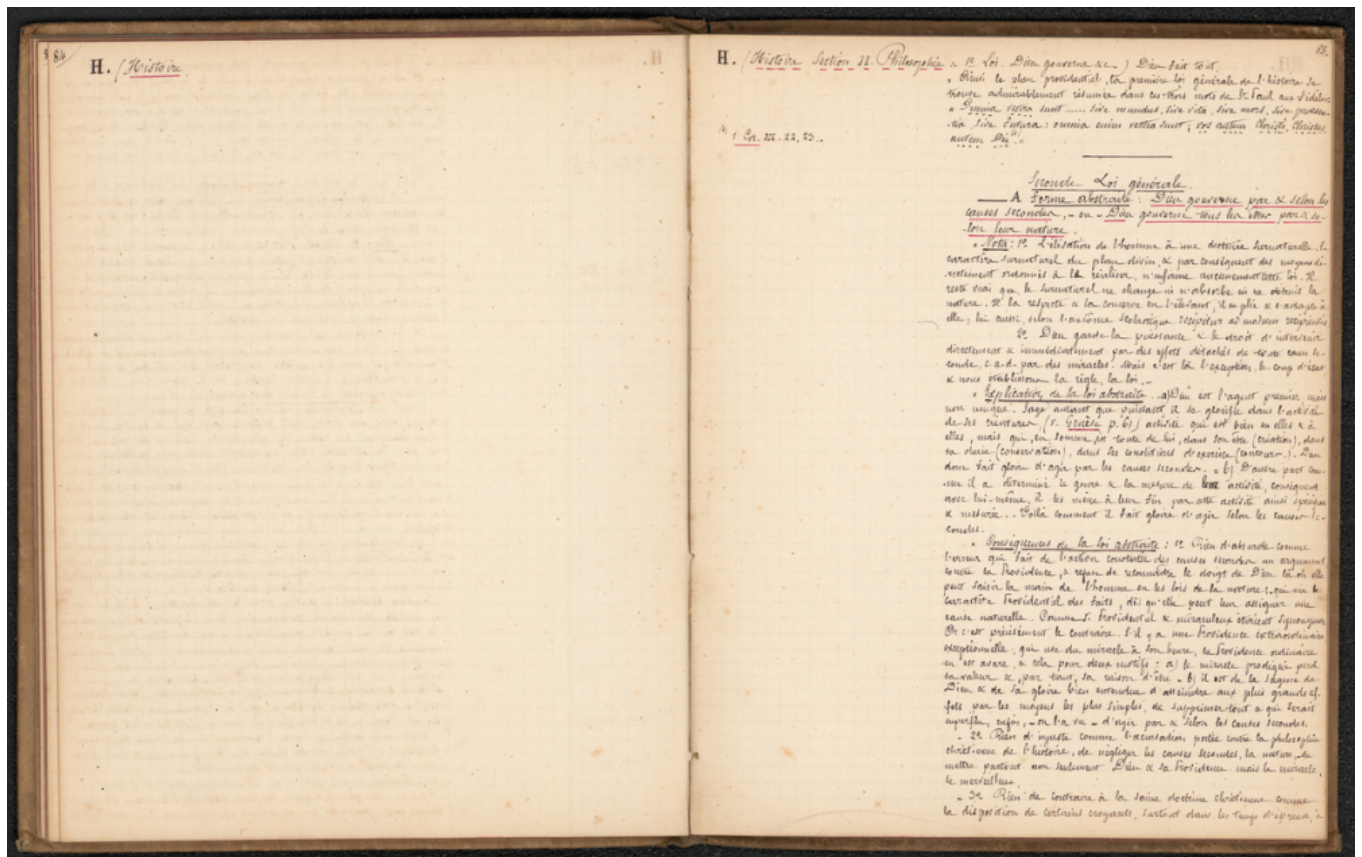 84
H. (Histoire
85.
H. (Histoire Section II. Philosophie « 1º Loi. Dieu gouverne &c. ) Dieu fait tout.
« Ainsi le plan providentiel, la première loi générale de l'histoire se
trouve admirablement résumée dans ces trois mots de St Paul aux fidèles:
« Omnia vestra sunt ..... sive mundus, sive vita, sive mors, sive præsen-
tia, sive futura : omnia enim vestra sunt ; vos autem Christi, Christus
autem Dei (1)
(1) 1 Cor. III. 22, 23..
Seconde Loi générale.
A Forme abstraite : Dieu gouverne par & selon les
causes secondes, - ou - Dieu gouverne tous les êtres par & se-
lon leur nature.
« Nota : 1º L'élévation de l'homme à une destinée surnaturelle, le
caractère surnaturel du plan divin, & par conséquent des moyens di-
rectement ordonnés à le réaliser, n'infirme aucunement cette loi. Il
reste vrai que le surnaturel ne change ni n'absorbe ni ne détruit la
nature. Il la respecte & la conserve en l'élevant, il se plie & s'adapte à
elle ; lui aussi, selon l'axiome scolastique recipitur ad modum recipientis
2º Dieu garde la puissance & le droit d'intervenir
directement & immédiatement par des effets détachés de toute cause se-
conde, c.a.d. par des miracles. Mais c'est là l'exception, le coup d'état
& nous établissons la règle, la loi. -
« Explication de la loi abstraite. - a) Dieu est l'agent premier mais
non unique. Sage autant que puissant il se glorifie dans l'activité
de ses créatures, (v. Genèse p. 61) activité qui est bien en elles & à
elles, mais qui, en somme, est toute de lui, dans son être (création), dans
sa durée (conservation), dans ses conditions d'exercice (concours.). Dieu
donc fait gloire d'agir par les causes secondes. - b) D'autre part com-
me il a déterminé le genre & la mesure de leur activité, conséquent
avec lui-même, il les mène à leur fin par cette activité ainsi spécifiée
& mesurée. - Voilà comment il fait gloire d'agir selon les causes se-
condes.
« Conséquences de la loi abstraite : 1º Rien d'absurde comme
l'erreur qui fait de l'action constatée des causes secondes un argument
contre la Providence, & refuse de reconnaître le doigt de Dieu là où elle
peut saisir la main de l'homme ou les lois de la nature ; qui nie le
caractère Providentiel des faits, dès qu'elle peut leur assigner une
cause naturelle. Comme si Providentiel & miraculeux étaient synonymes
Or c'est précisément le contraire. S'il y a une Providence extraordinaire
exceptionnelle, qui use du miracle à son heure, la Providence ordinaire
en est avare, & cela pour deux motifs : a) le miracle prodigué perd
sa valeur &, par tant, sa raison d'être - b) il est de la sagesse de
Dieu & de sa gloire bien entendue d'atteindre aux plus grands ef-
fets par les moyens les plus simples, de supprimer tout ce qui serait
superflu, enfin, - on l'a vu - d'agir par & selon les causes secondes.
- 2º Rien d'injuste comme l'accusation portée contre la philosophie
chrétienne de l'histoire, de négliger les causes secondes, la nature, de
mettre partout non seulement Dieu & sa Providence mais le miracle,
le merveilleux.
- 3º Rien de contraire à la saine doctrine chrétienne comme
la disposition de certains croyants, surtout dans les temps d'épreuve, à